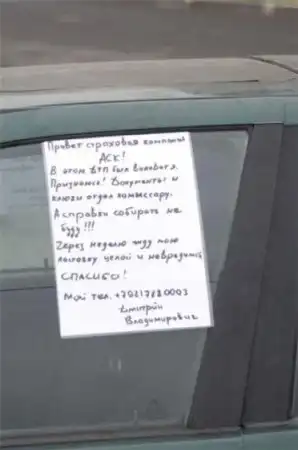 Привет страховая компания
АСК!
В этом ДТП был виноват я.
Признаюсь! Документы и
ключи отдал комиссару.
А справки собирать не
буду!!!
Через неделю жду мою
целой и невредимой
СПАСИБО!
Мой тел.
Дмитрий
Владимирович